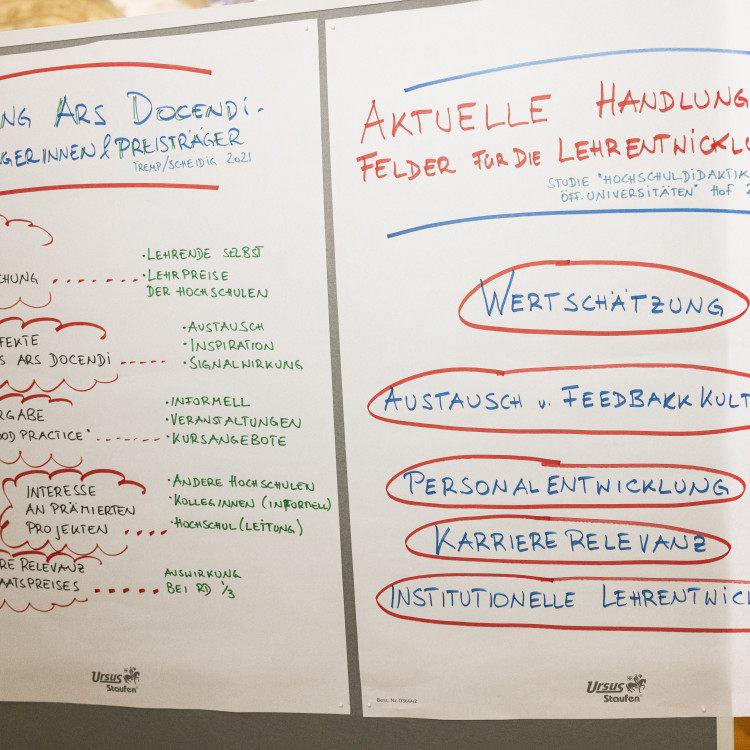 NG ARS DOCENDI-
GERINNEN & PREISTRÄGER
TREMP/SCHEIDIG 2021
CHUNG
• LEHRENDE SELBST
• LEHRPREISE
DER HOCHSCHULEN
FEKTE
S ARS DOCENDI
• AUSTAUSCH
• INSPIRATION
• SIGNALWIRKUNG
RGABE
OOD PRACTICE"
• INFORMELL
• VERANSTALTUNGEN
• KURSANGEBOTE
INTERESSE
AN PRÄMIERTEN
PROJEKTEN
• ANDERE HOCHSCHULEN
• KOLLEGINNEN (INFORMELL)
• HOCHSCHUL(LEITUNG)
RE RELEVANZ
AATSPREISES
AUSWIRKUNG
BEI RD 1/3
Ursus
Staufen
AKTUELLE HANDLUNG
FELDER FÜR DIE LEHRENTWICKLU
STUDIE "HOCHSCHULDIDAKTIK
ÖFF. UNIVERSITÄTEN" HOF 2
WERTSCHÄTZUNG
AUSTAUSCH u. FEEDBACKKULT
PERSONALENTWICKLUNG
KARRIERERELEVANZ
INSTITUTIONELLE LEHRENTWICK
Ursus
Staufen